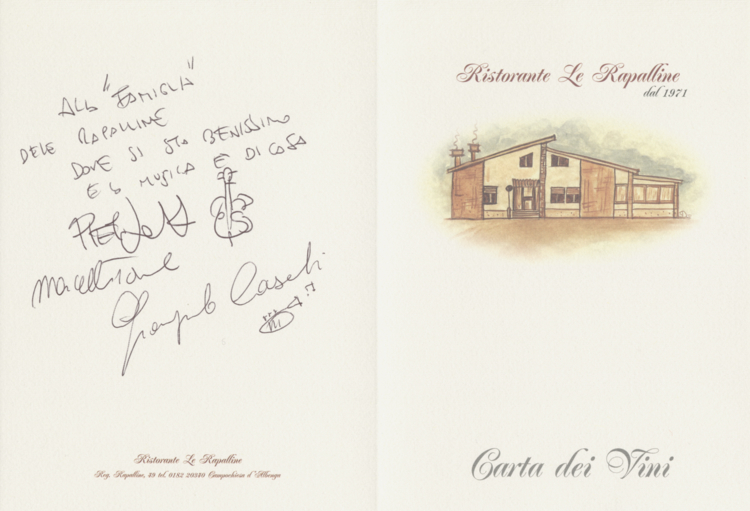 ALLA "FAMIGLIA"
DELE RAPALLINE
DOVE SI STA BENISSIMO
E LA MUSICA È DI CASA
Ristorante Le Rapalline
Reg. Rapalline, 29 tel. 0182 20240 Campochiesa d'Albenga
Ristorante Le Rapalline
dal 1971
Carta dei Vini